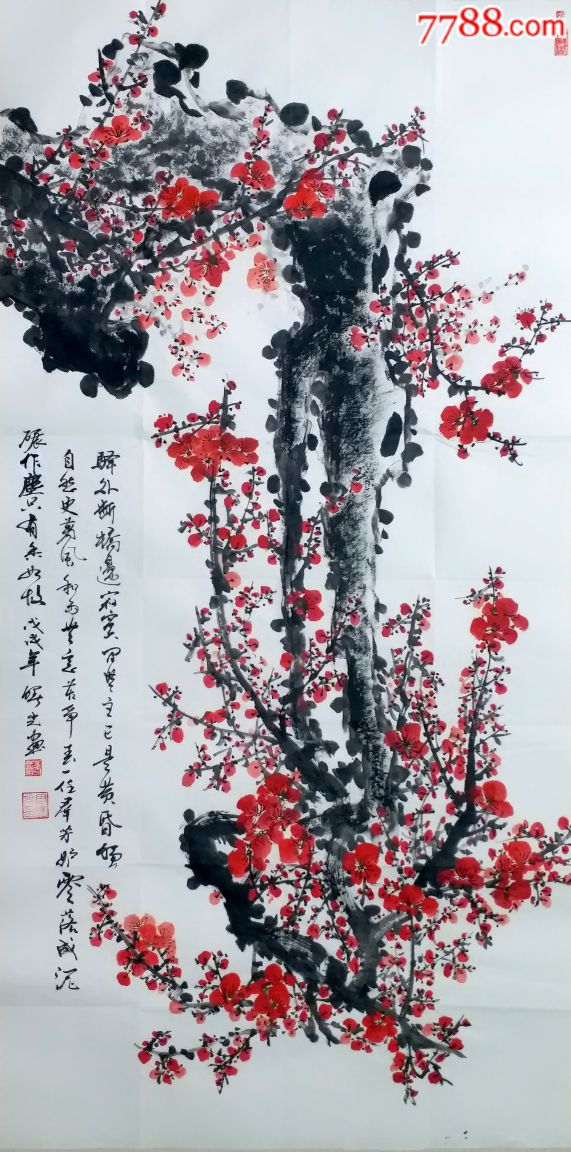 7788.com
驛外斷橋邊寂寞開無主已是黄昏獨
自愁更著風和雨無意苦爭春一任羣芳妒零落成泥
碾作塵只有香如故戊戌年